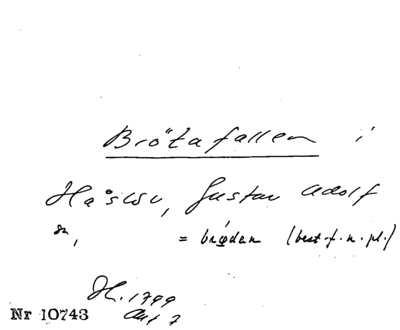 Brötafallen i
Håslöv, Gustav Adolf
sn, = brødan (best. f. n. pl.)
H. 1799
Akt 7
Nr 10743